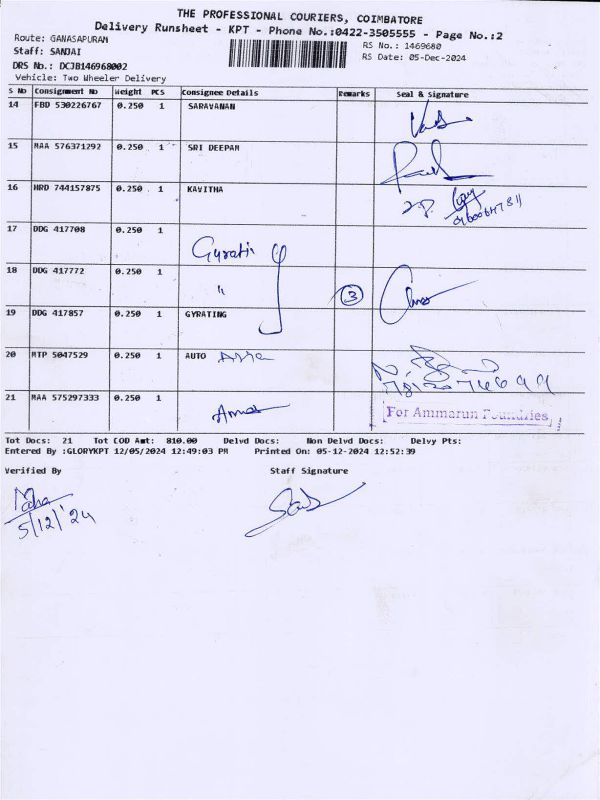 THE PROFESSIONAL COURIERS, COIMBATORE
Delivery Runsheet - KPT - Phone No.:0422-3505555 - Page No.:2
Route: GANASAPURAM
RS No.: 1469680
Staff: SANJAI
RS Date: 05-Dec-2024
DRS No.: DCJB146968002
Vehicle: Two Wheeler Delivery
S No Consignment No Weight PCS Consignee Details Remarks Seal & Signature
14 FBD 530226767 0.250 1 SARAVANAN
15 MAA 576371292 0.250 1 SRI DEEPAM
16 HRD 744157875 0.250 1 KAVITHA
17 DDG 417708 0.250 1
Gyratin
18 DDG 417772 0.250 1 " 3
19 DDG 417857 0.250 1 GYRATING
20 MTP 5047529 0.250 1 AUTO
21 MAA 575297333 0.250 1
For Ammarun Foundries
Tot Docs: 21 Tot COD Amt: 810.00 Delvd Docs: Non Delvd Docs: Delvy Pts:
Entered By :GLORYKPT 12/05/2024 12:49:03 PM Printed On: 05-12-2024 12:52:39
Verified By Staff Signature
5/12/'24